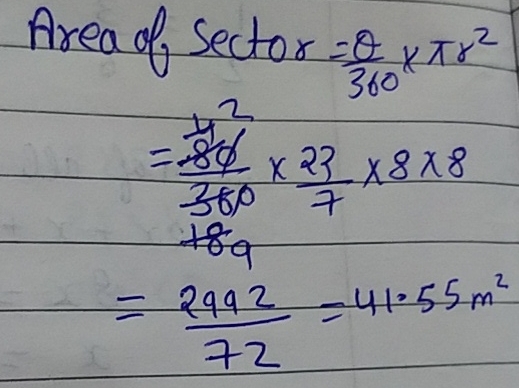 Area of Sector = θ/360 × πr²
4 2
= 80/360 × 23/7 × 8 × 8
18 9
= 2992/72 = 41.55 m²